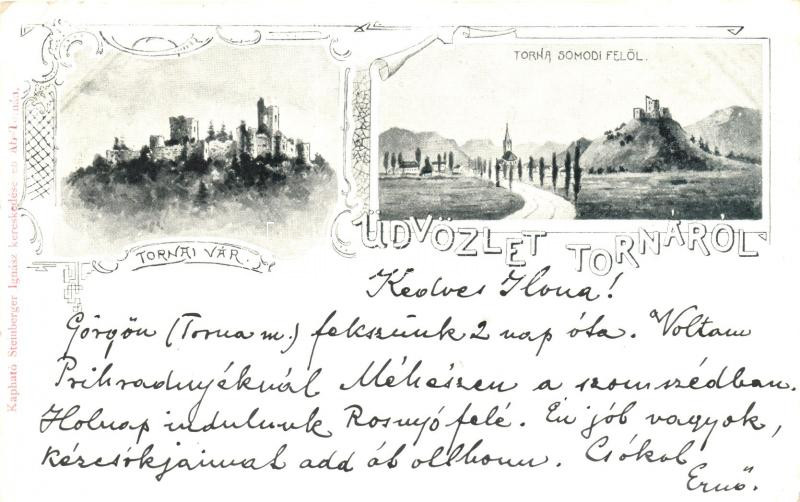 TORNA SOMODI FELŐL.
TORNAI VÁR.
ÜDVÖZLET TORNÁRÓL
Kedves Ilona!
Görgőn (Torna m.) fekszünk 2 nap óta. Voltam
Prihradnyéknál Méhészen a szomszédban.
Holnap indulunk Rosnyó felé. Én jól vagyok,
kézcsókjaimat add át otthonn. Csókol
Ernő.
Kapható Sternberger Ignász kereskedése